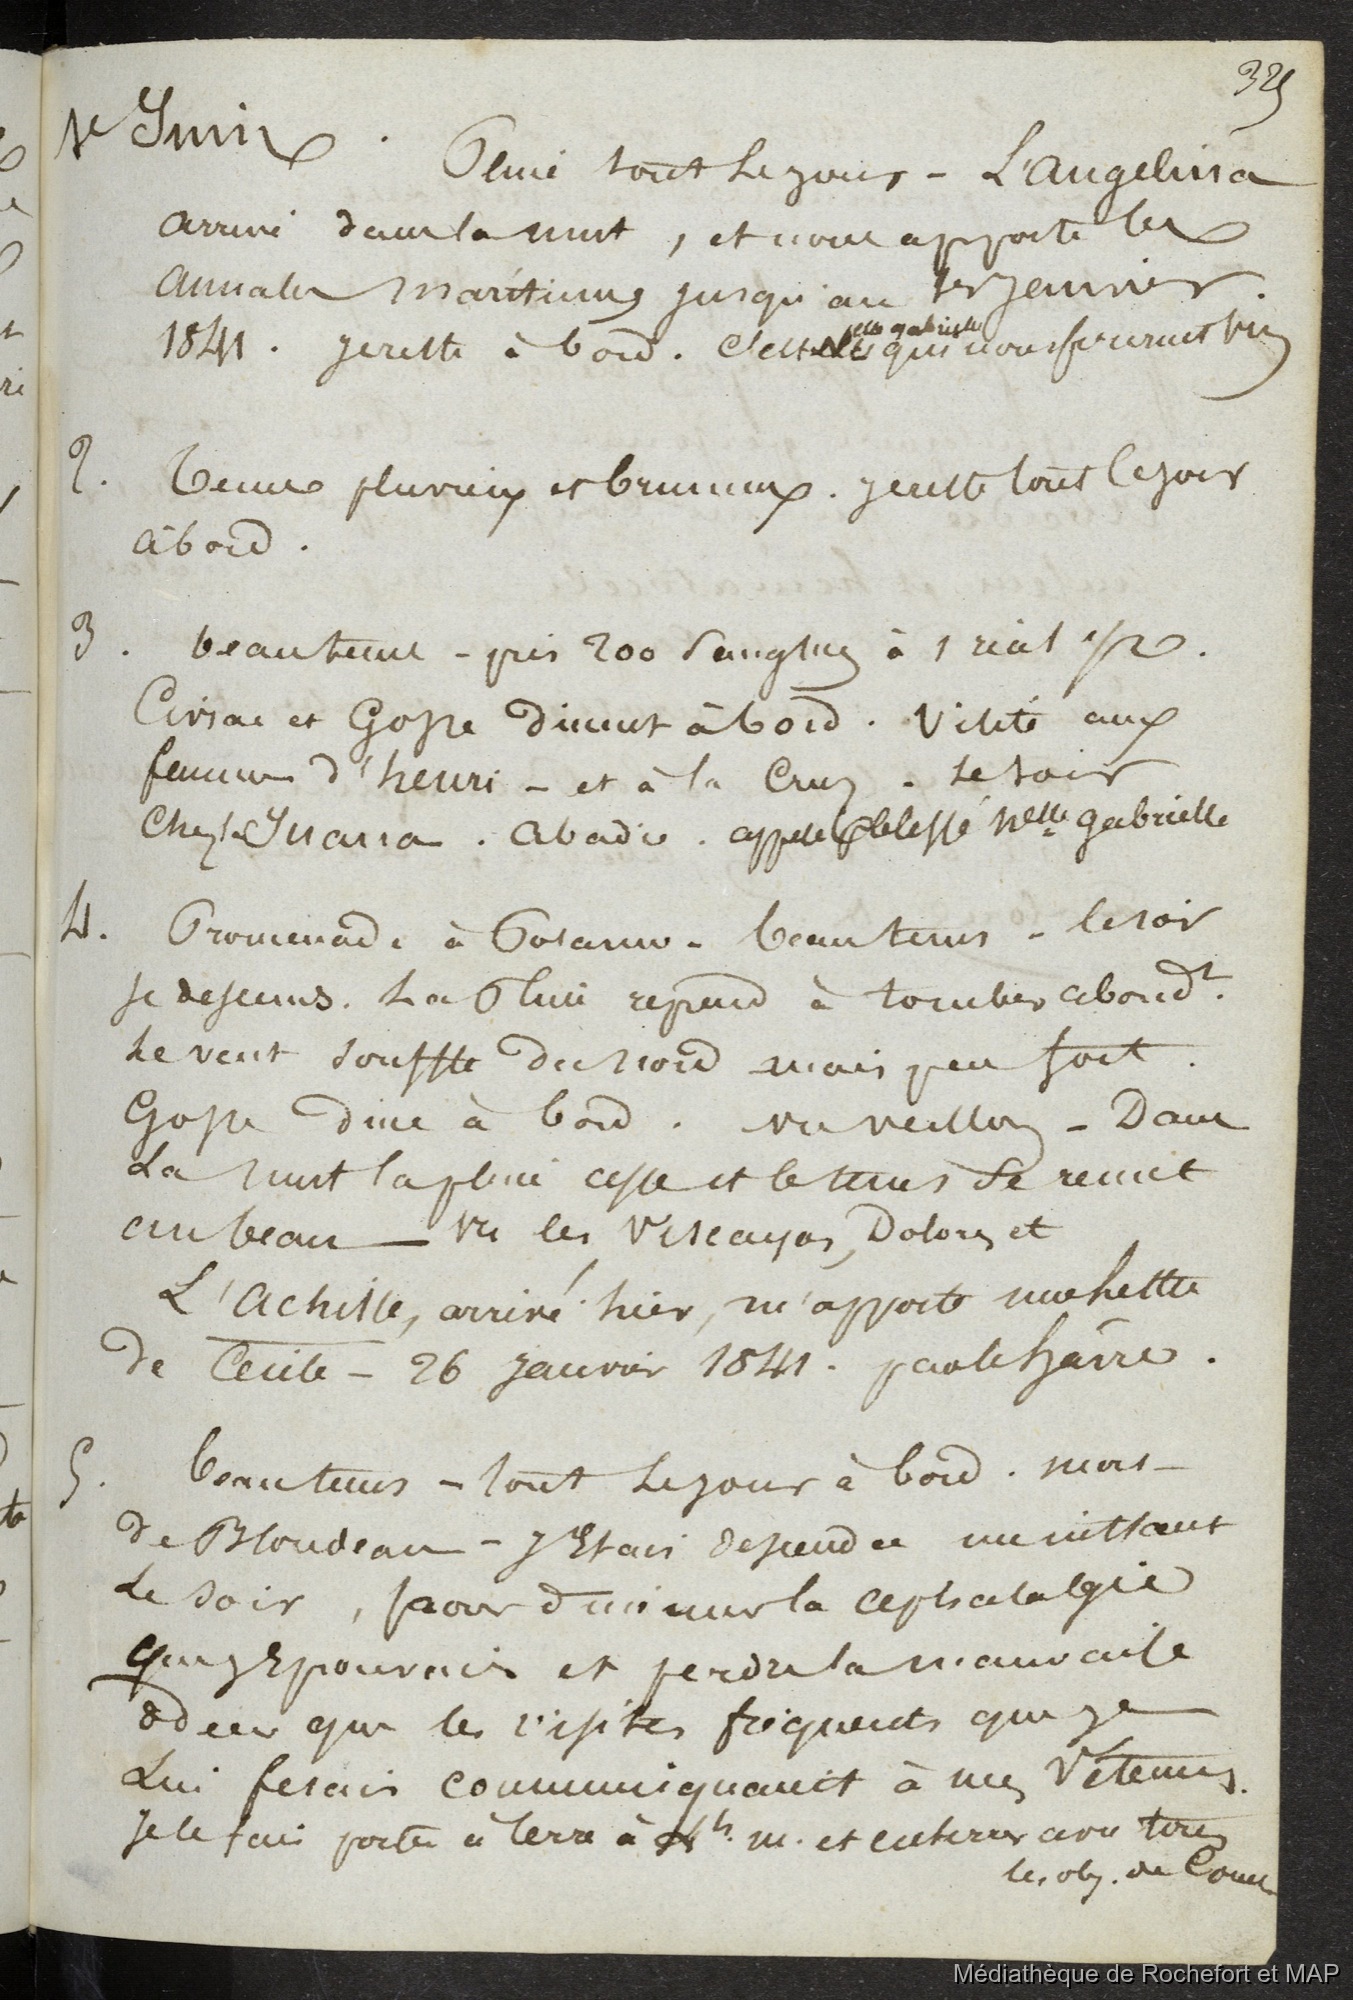 325
1er Juin.
Pluie tout le jour - L'Angelina
arrive dans la nuit, et nous apporte les
annales maritimes jusqu'au 1er Janvier.
1841. je reste à bord. C'est elle qui nous fournit
elle gabrielle
2. temps pluvieux et brumeux. je reste tout le jour
à bord.
3. beau tems - pris 200 Sangsues à 1 rial 1/2.
Cirsac et Gosse dinent à bord. Visite aux
femmes d'henri - et à la Cruz. le soir
Chez La Juana. Abadie. appelé blessé Nelle gabrielle
4. Promenade à - beau tems - le soir
je descends. La Pluie reprend à tomber abondt.
Le vent souffle du nord mais peu fort.
Gosse dine à bord. vu veillon - Dans
La nuit la pluie cesse et le tems se remet
au beau - vu les Viscayas, Dolores et
L'Achille, arrivé hier, m'apporte une lettre
de Cecile - 26 Janvier 1841. par le hâvre.
5. beau tems - tout le jour à bord. mort
de Blondeau - J'Etais descendu un instant
le soir, pour diminuer la cephalalgie
que j'Eprouvais et perdre la mauvaise
odeur que les visites fréquents que je
Lui fesais communiquait à mes Vêtemens.
Je le fais porter à terre à h. m. et enterrer avec tous
les obj. de Couch
Médiathèque de Rochefort et MAP